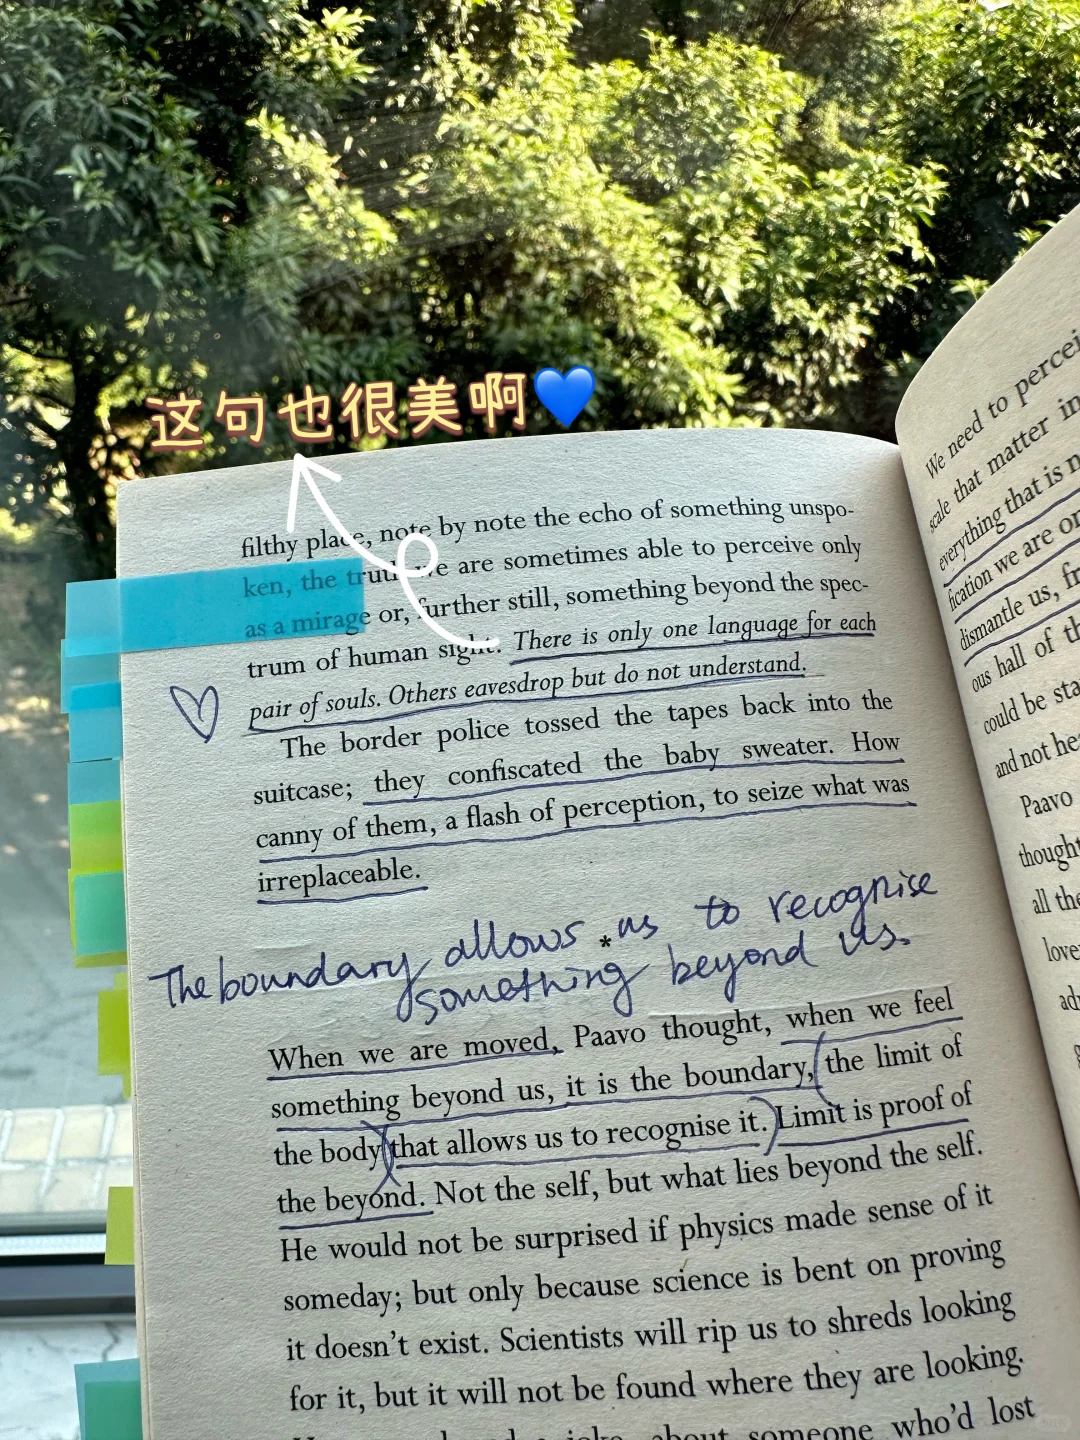 这句也很美啊
filthy place, note by note the echo of something unspo-
ken, the truth we are sometimes able to perceive only
as a mirage or, further still, something beyond the spec-
trum of human sight. There is only one language for each
pair of souls. Others eavesdrop but do not understand.
The border police tossed the tapes back into the
suitcase; they confiscated the baby sweater. How
canny of them, a flash of perception, to seize what was
irreplaceable.
The boundary allows us to recognise
*
something beyond us.
When we are moved, Paavo thought, when we feel
something beyond us, it is the boundary, the limit of
the body that allows us to recognise it. Limit is proof of
the beyond. Not the self, but what lies beyond the self.
He would not be surprised if physics made sense of it
someday; but only because science is bent on proving
it doesn't exist. Scientists will rip us to shreds looking
for it, but it will not be found where they are looking.
joke about someone who'd lost
We need to percei
scale that matter in
everything that is n
fication we are or
dismantle us, fr
ous hall of th
could be sta
and not he
Paavo
thought
all the
love
ad